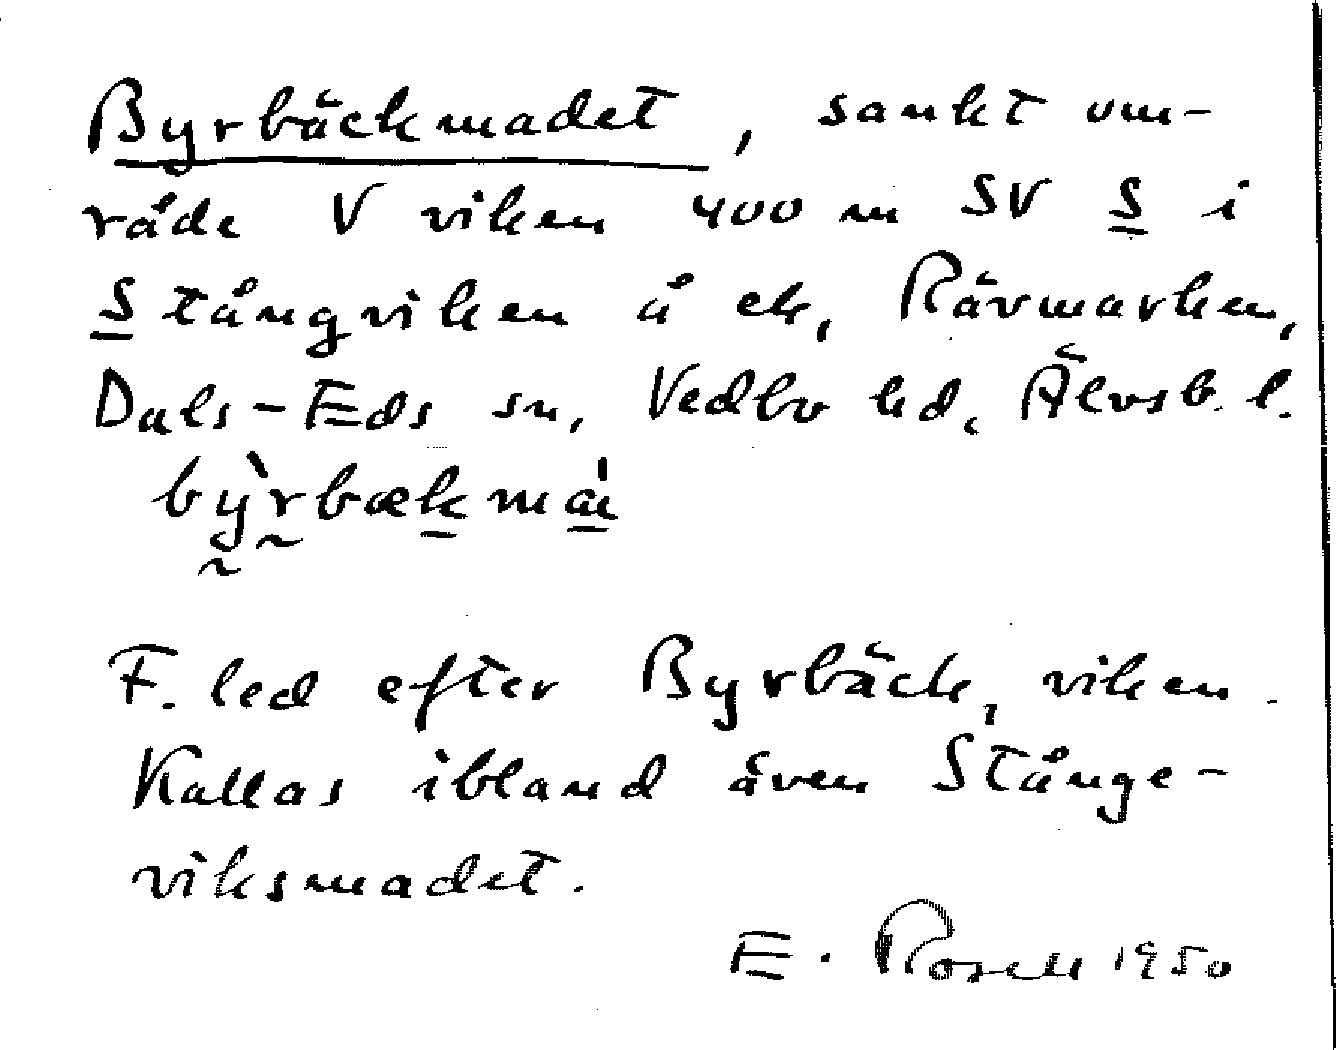 Byrbäckmadet, sankt om-
råde V viken 400 m SV S i
Stångviken å ek, Rävmarken,
Dals-Eds sn, Vedbo hd, Älvsb. l.
bỳrbækmái
F. led efter Byrbäck, viken.
Kallas ibland även Stånge-
viksmadet.
E. Rosell 1950